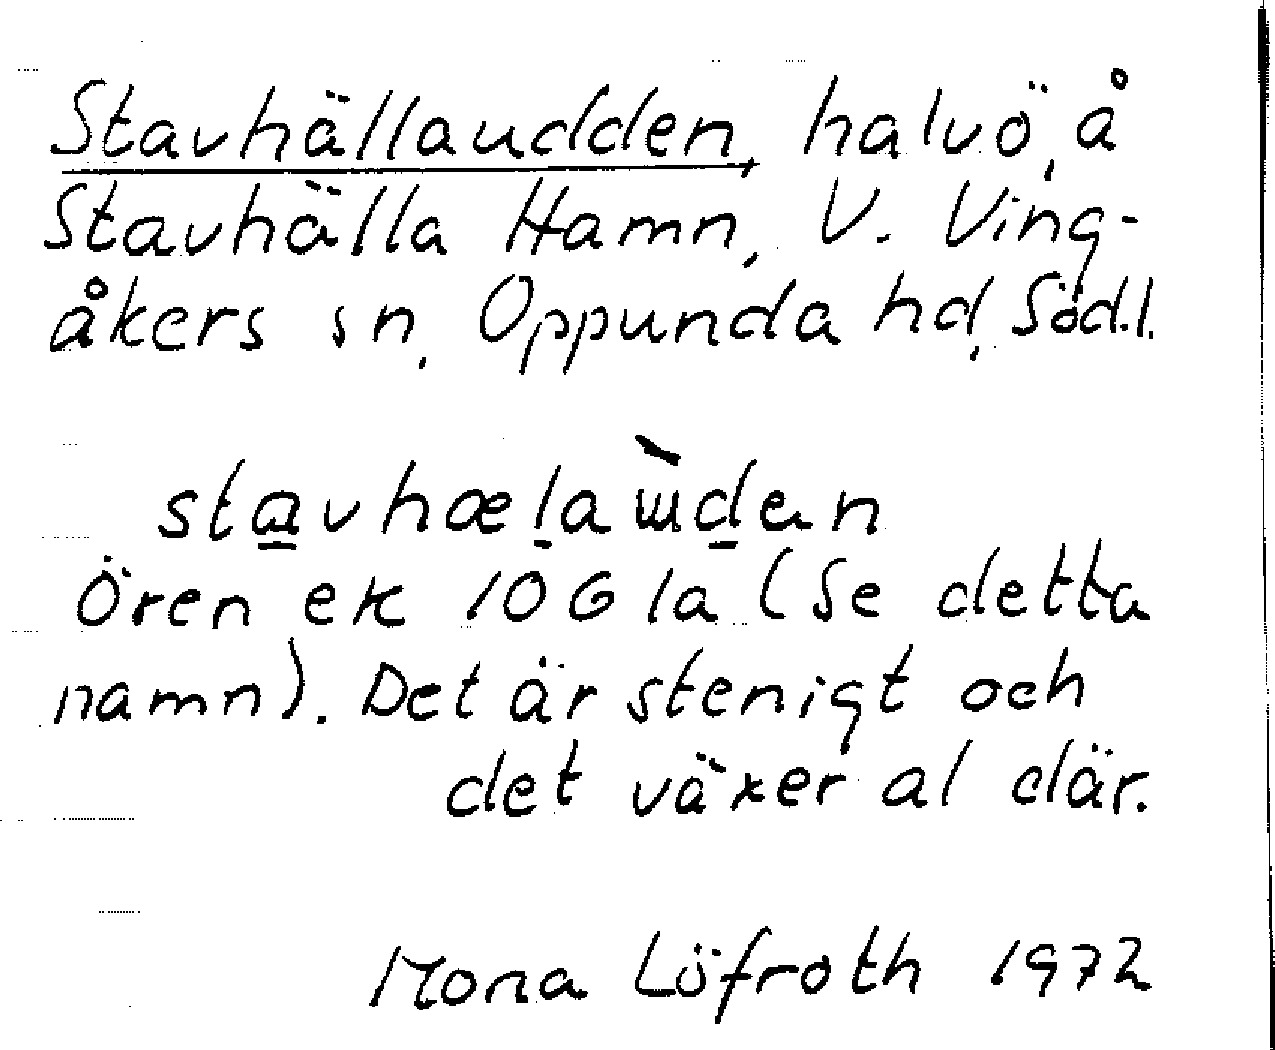 Stavhällaudden, halvö, å
Stavhälla Hamn, V. Ving-
åkers sn, Oppunda hd, Söd.l.
sta̲vhæl̲aɯ̀d̲ən
Ören ek 10G1a (Se detta
namn). Det är stenigt och
det växer al där.
Mona Löfroth 1972